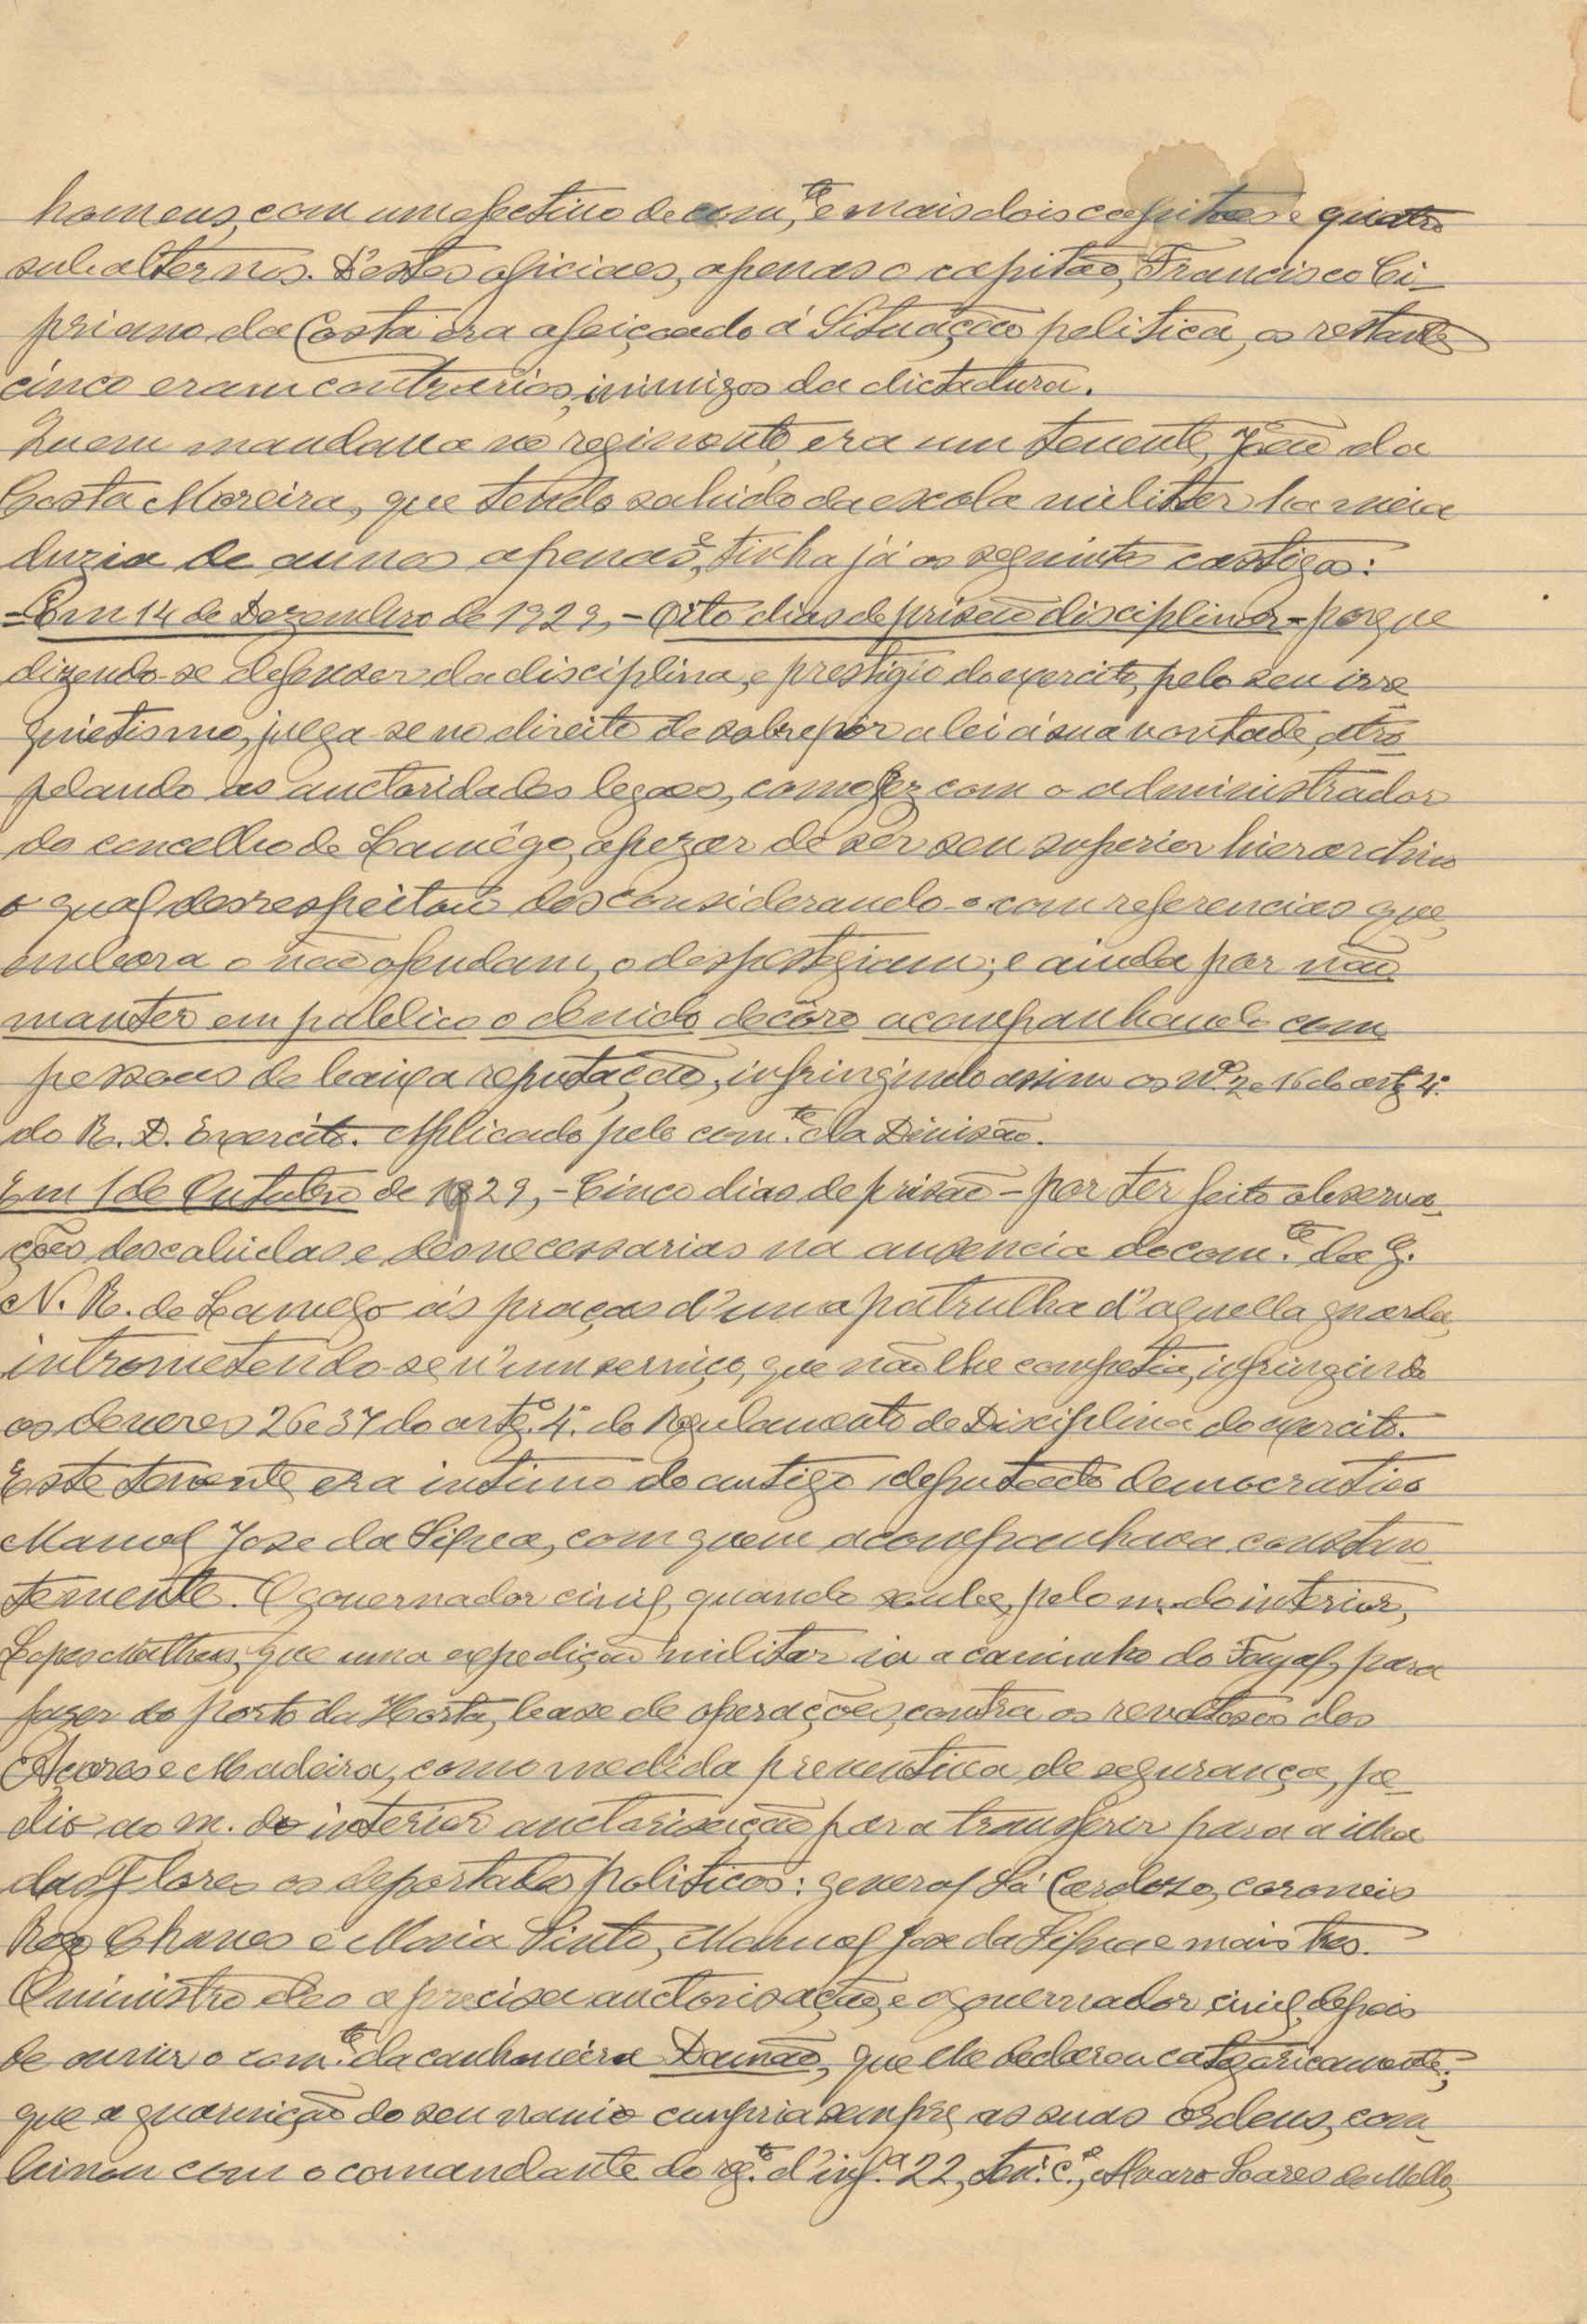 homens, com um efectivo de com.te, e mais dois capitães e quatro
subalternos. D'estes oficiaes, apenas o capitão, Francisco Ci-
priano da Costa era afeiçoado á Situação politica, os restantes
cinco eram contrarios, inimigos da dictadura.
Quem mandava no regimento era um tenente, João da
Costa Moreira, que tendo sahido da escola militar ha meia
duzia de annos apenas, tinha já os seguintes castigos:
-Em 14 de Dezembro de 1929,- Oito dias de prisão disciplinar - porque
dizendo-se defensor da disciplina, e prestigio do exercito, pelo seu irre
quietismo, julga-se no direito de sobrepôr a lei á sua vontade, atro
pelando as auctoridades legaes, como fez com o administrador
do concelho de Lamêgo, apezar de ser seu superior hierarchico
o qual desrespeitou desconsiderando-o com referencias que,
embora o não ofendam, o despestegiam; e ainda por não
manter em publico o devido decôro acompanhando com
pessoas de baixa reputação, infringindo assim os nos. 2 e 16 do artº 4º.
do R. D. Exercito. Aplicado pelo com.te da Divisão.
Em 1 de Outubro de 1929,- Cinco dias de prisão - por ter feito observa-
ções descabidas e desnecessarias na ausencia do com.te da G.
N. R. de Lamego ás praças d'uma patrulha d'aquella guarda,
intrometendo-se n'um serviço, que não lhe competia, infringindo
os deveres 26 e 37 do artº. 4º. do Regulamento de Disciplina do exercito.
Este tenente era intimo do antigo deputado democratico
Manoel Jose da Silva, com quem acompanhava constan-
temente. O governador civil, quando soube, pelo m. do interior,
Lopes Matheus, que uma expedição militar ia a caminho do Fayal, para
fazer do porto da Horta, base de operações, contra os revoltosos dos
Açores e Madeira, como medida preventiva de segurança, pe-
dio ao m. do interior auctorisação para transferir para a ilha
das Flores os deportados politicos: general Sá Cardoso, coroneis
Rego Chaves e Maia Pinto, Manoel Jose da Silva e mais tres.
O ministro deo a precisa auctorisação, e o governador civil, depois
de ouvir o com.te da canhoneira Damão, que lhe declarou categoricamente;
que a guarnição do seu navio cumpria sempre as suas ordens, com-
binou com o comandante do reg.to d'inf.a 22, ten.te c.el, Alvaro Soares de Mello,